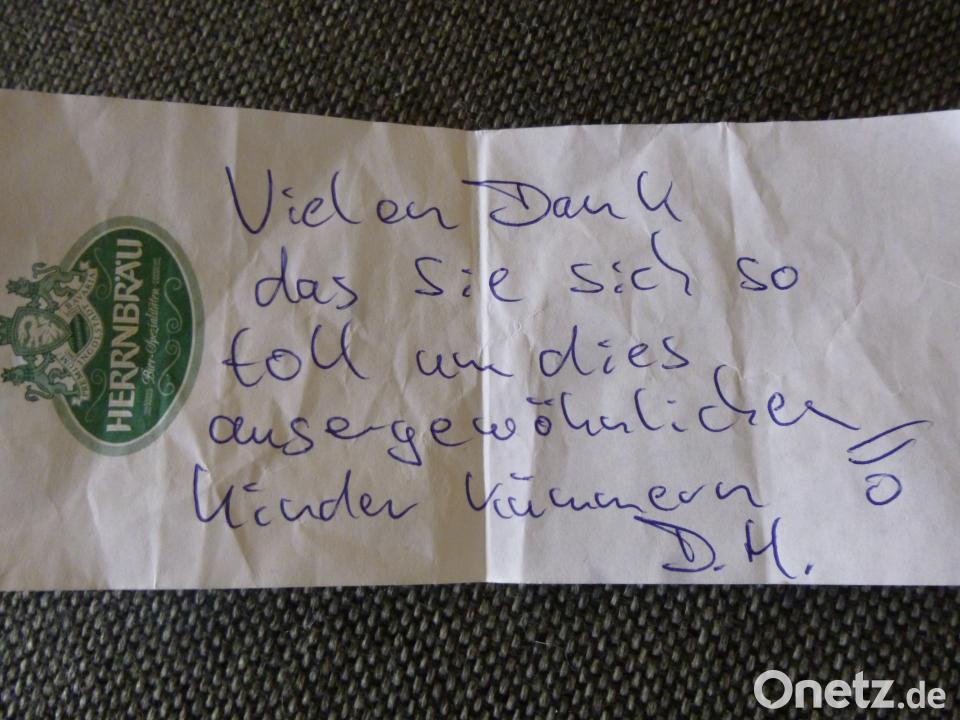 Vielen Dank
das Sie sich so
toll um dies
ausergewöhnlichen
Kinder kümmern!
D.H.
HERRNBRÄU
Bier-Spezialitäten
INGOLSTADT
BAVARIA
Onetz.de